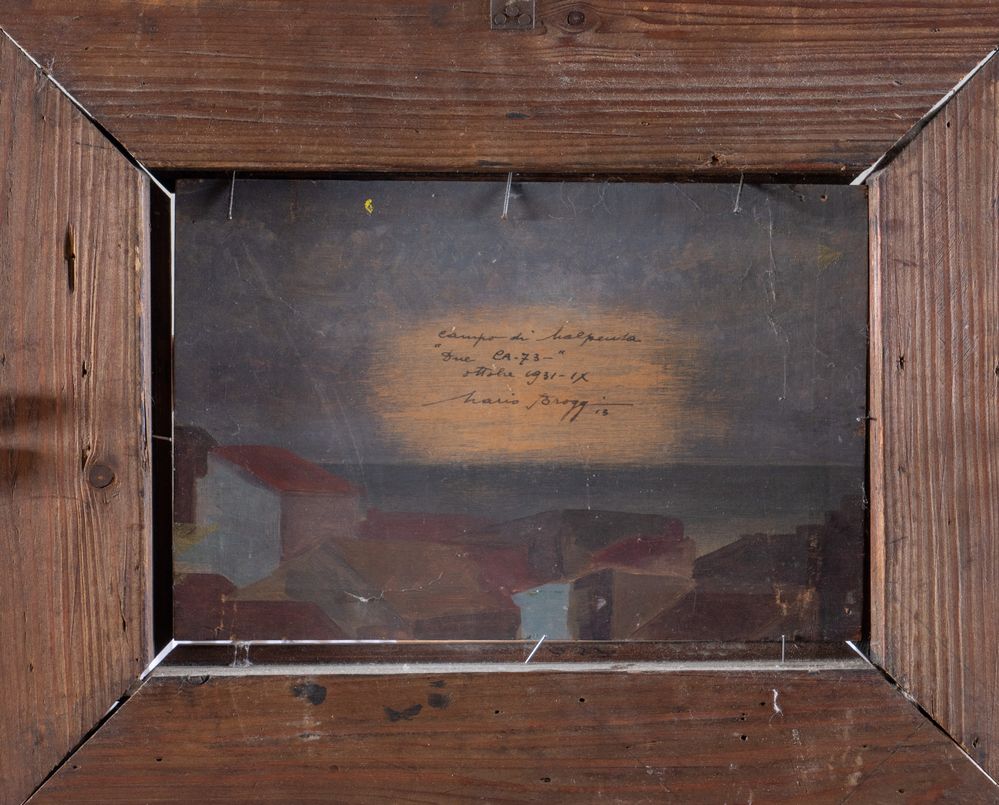 campo di Malpensa
"Due CA-73-"
ottobre 1931-IX
Mario Broggi